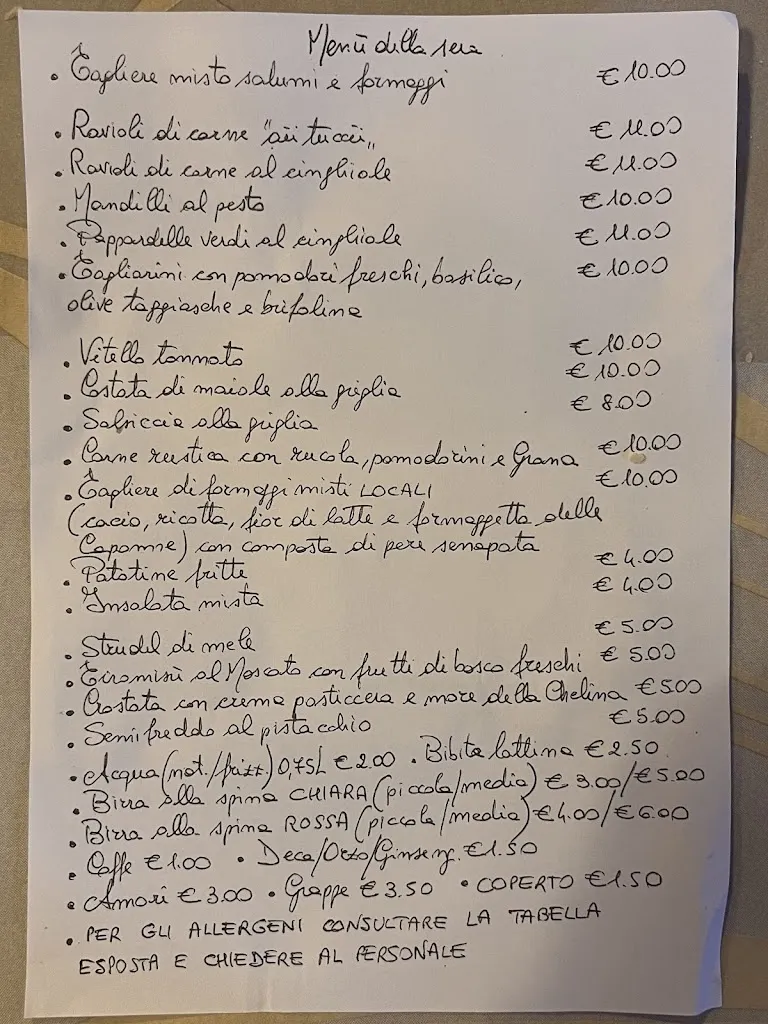 Menù della sera
• Tagliere misto salumi e formaggi € 10.00
• Ravioli di carne "au tuccu" € 11.00
• Ravioli di carne al cinghiale € 11.00
• Mandilli al pesto € 10.00
• Pappardelle verdi al cinghiale € 11.00
• Tagliarini con pomodori freschi, basilico, € 10.00
olive taggiasche e brifolina
• Vitello tonnato € 10.00
• Costata di maiale alla griglia € 10.00
• Salsiccia alla griglia € 8.00
• Carne rustica con rucola, pomodorini e Grana € 10.00
• Tagliere di formaggi misti LOCALI € 10.00
(cacio, ricotta, fior di latte e formaggetta delle
Capanne) con composta di pere senapata
• Patatine fritte € 4.00
• Insalata mista € 4.00
• Strudel di mele € 5.00
• Tiramisù al Moscato con frutti di bosco freschi € 5.00
• Crostata con crema pasticcera e more della Chelina € 5.00
• Semifreddo al pistacchio € 5.00
• Acqua (nat./frizz.) 0,75L € 2.00 • Bibita lattina € 2.50
• Birra alla spina CHIARA (piccola/media) € 3.00/€ 5.00
• Birra alla spina ROSSA (piccola/media) € 4.00/€ 6.00
• Caffè € 1.00 • Deca/Orzo/Ginseng. € 1.50
• Amari € 3.00 • Grappe € 3.50 • COPERTO € 1.50
• PER GLI ALLERGENI CONSULTARE LA TABELLA
ESPOSTA E CHIEDERE AL PERSONALE